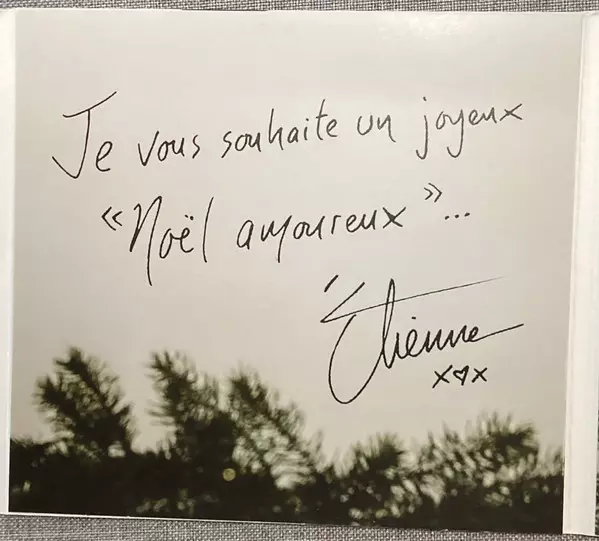 Je vous souhaite un joyeux
«Noël amoureux»...
Étienne
x♡x